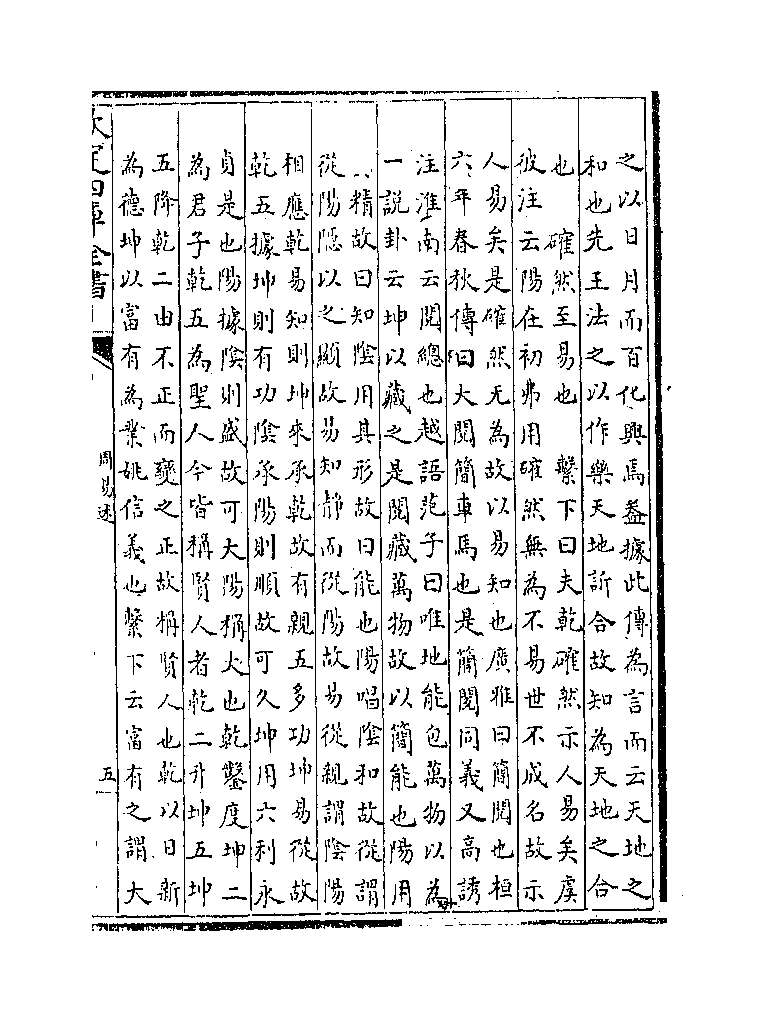 之以日月而百化興焉葢據此傳為言而云天地之
和也先王法之以作樂天地訢合故知為天地之合
也　確然至易也　繫下曰夫乾確然示人易矣虞
彼注云陽在初弗用確然無為不易世不成名故示
人易矣是確然无為故以易知也廣雅曰簡閱也桓
六年春秋傳曰大閱簡車馬也是簡閱同義又高誘
注淮南云閱總也越語范子曰唯地能包萬物以為
一說卦云坤以藏之是閱藏萬物故以簡能也陽用
其精故曰知陰用其形故曰能也陽唱陰和故從謂
從陽隱以之顯故易知静而從陽故易從親謂陰陽
相應乾易知則坤來承乾故有親五多功坤易從故
乾五據坤則有功陰承陽則順故可久坤用六利永
貞是也陽據陰則盛故可大陽稱大也乾鑿度坤二
為君子乾五為聖人今皆稱賢人者乾二升坤五坤
五降乾二由不正而變之正故稱賢人也乾以日新
為德坤以富有為業姚信義也繫下云富有之謂大
欽定四庫全書
周易述
五